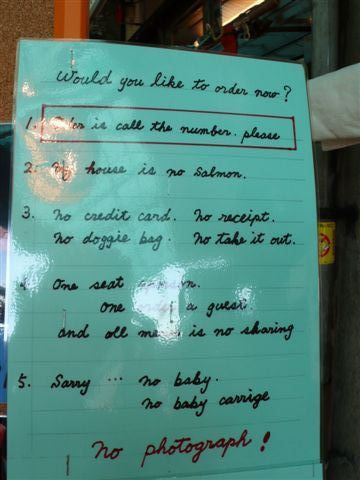 Would you like to order now?
1. Order is call the number. please
2. My house is no Salmon.
3. No credit card. No receipt.
No doggie bag. No take it out.
One seat
One a guest.
and all is no sharing
5. Sarry ... no baby.
no baby carrige
No photograph!